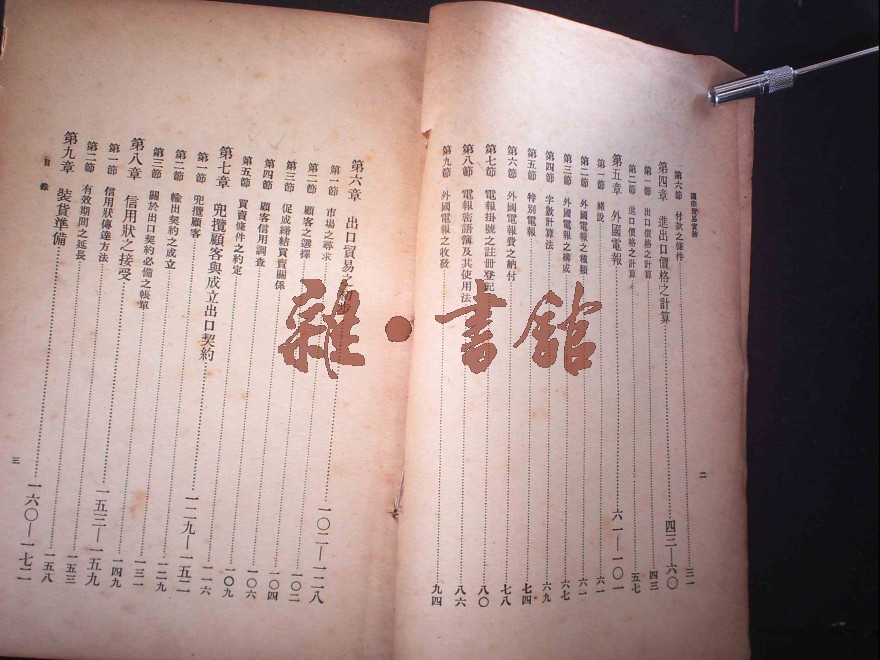 國際貿易實務
二
第六節 付款之條件 三一
第四章 進出口價格之計算 四三—六〇
第一節 出口價格之計算 四三
第二節 進口價格之計算 五七
第五章 外國電報 六一—一〇一
第一節 緒說 六一
第二節 外國電報之種類 六一
第三節 外國電報之構成 六七
第四節 字數計算法 六九
第五節 特別電報 七四
第六節 外國電報費之納付 七八
第七節 電報掛號之註冊登記 八〇
第八節 電報密語簿及其使用法 八六
第九節 外國電報之收發 九四
第六章 出口貿易之 一〇二—一二八
第一節 市場之尋求 一〇二
第二節 顧客之選擇 一〇二
第三節 促成締結買賣關係 一〇四
第四節 顧客信用調查 一〇六
第五節 買賣條件之約定 一〇九
第七章 兜攬顧客與成立出口契約 一二九—一五二
第一節 兜攬顧客 一一六
第二節 輸出契約之成立 一二九
第三節 關於出口契約必備之帳單 一三一
第八章 信用狀之接受 一五三—一五九
第一節 信用狀傳達方法 一四九
第二節 有效期間之延長 一五三
第九章 裝貨準備 一六〇—一七一
一五八
目錄
三
雜·書館